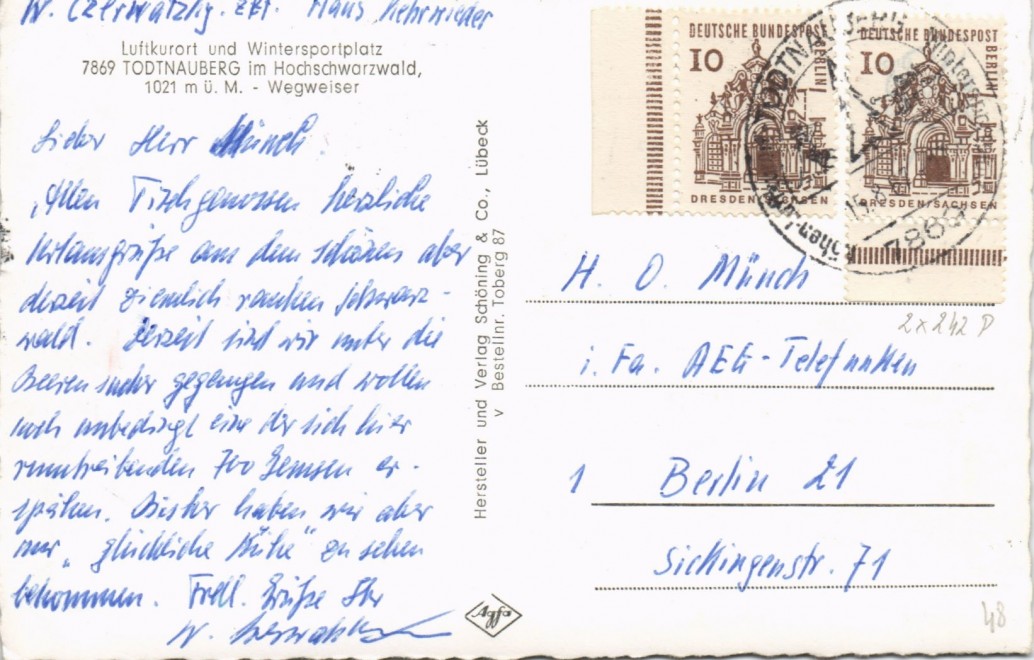 W. Czerwatzky. zzt. Haus Kehrwieder
Luftkurort und Wintersportplatz
7869 TODTNAUBERG im Hochschwarzwald,
1021 m ü. M. - Wegweiser
Lieber Herr Münch.
Allen Tischgenossen herzliche
Urlaubsgrüße aus dem schönen aber
derzeit ziemlich rauhen Schwarz-
wald. Derzeit sind wir unter die
Beerensucher gegangen und wollen
noch unbedingt eine der sich hier
rumtreibenden 700 Gemsen er-
spähen. Bisher haben wir aber
nur "glückliche Kühe" zu sehen
bekommen. Frdl. Grüße Ihr
W.
Hersteller und Verlag Schöning & Co., Lübeck
v Bestellnr. Toberg 87
Agfa
DEUTSCHE BUNDESPOST
BERLIN
10
DRESDEN/SACHSEN
DEUTSCHE BUNDESPOST
BERLIN
10
DRESDEN/SACHSEN
TODTNAUBERG
7869
H. O. Münch
2x242 P
i. Fa. AEG-Telefunken
1 Berlin 21
Sickingenstr. 71
48